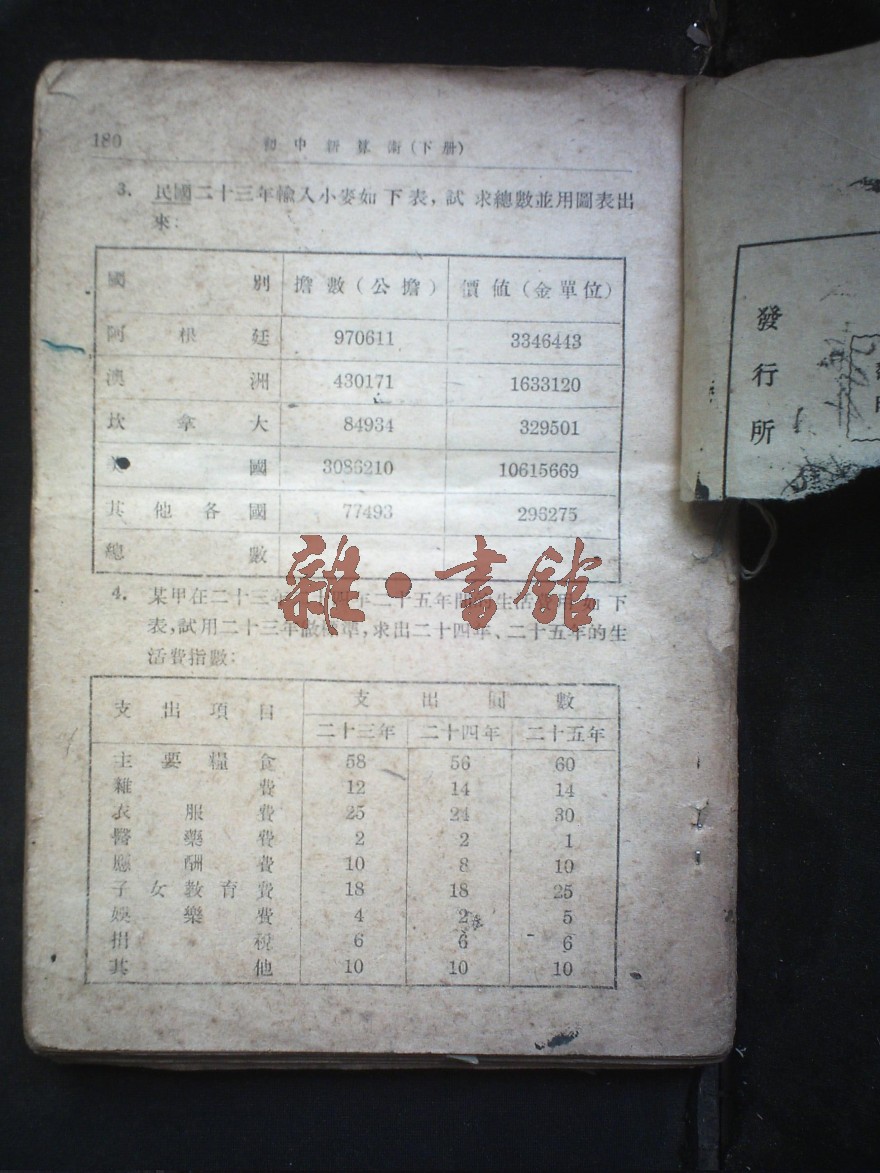 180 初中新算術(下册)
3. 民國二十三年輸入小麥如下表,試求總數並用圖表出
來:
國別 擔數(公擔) 價值(金單位)
阿根廷 970611 3346443
澳洲 430171 1633120
坎拿大 84934 329501
國 3086210 10615669
其他各國 77493 296275
總數
4. 某甲在二十三年 年二十五年間 生活費用如下
表,試用二十三年做標準,求出二十四年、二十五年的生
活費指數:
支出項目 支出圓數
二十三年 二十四年 二十五年
主要糧食 58 56 60
雜費 12 14 14
衣服費 25 24 30
醫藥費 2 2 1
應酬費 10 8 10
子女教育費 18 18 25
娛樂費 4 2 5
捐稅 6 6 6
其他 10 10 10
發行所
雜·書館